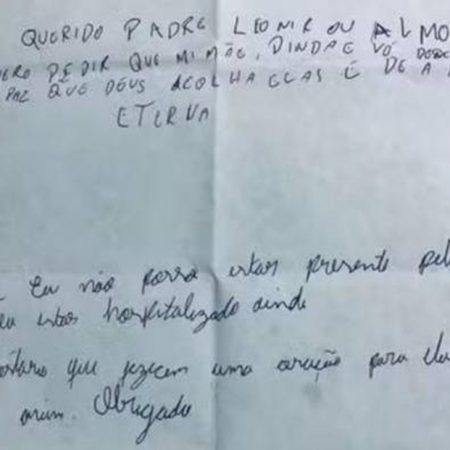 QUERIDO PADRE LEONIR OU ALMO
ERO PEDIR QUE MI MÃE, DINDA E VÓ
PAZ QUE DEUS ACOLHA ELAS E DE A
ETERNA
Eu não possa estar presente pel
eu estar hospitalizado ainda
que fizecem uma oração para
mim. Obrigado